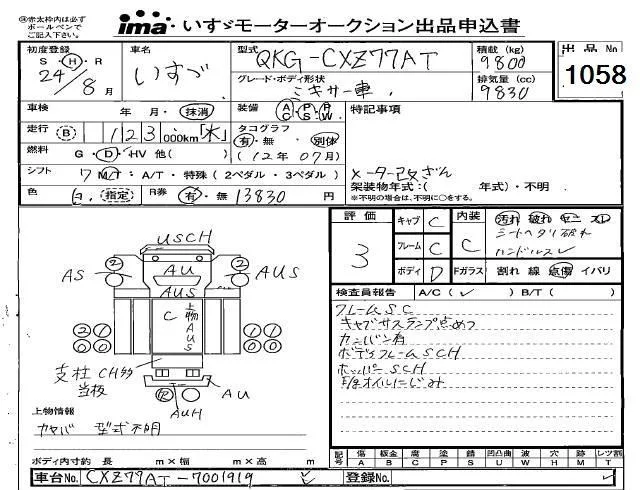 ㊟赤太枠内は必ず
ボールペンで
ご記入下さい。
ima いすゞモーターオークション出品申込書
初度登録 車名 型式 積載 (kg) 出品No.
S・H・R 24/8月 いすゞ QKG-CXZ77AT 9800 1058
グレード・ボディ形状 排気量 (cc)
ミキサー車 9830
車検 年 月・抹消 装備 AC PS PW 特記事項
走行 B 123,000km「水」 タコグラフ
有・無 別体
燃料 G・D・HV 他( ) (12年07月)
シフト 7 M/T・A/T・特殊(2ペダル・3ペダル) メーター改ざん
架装物年式:( 年式)・不明
※不明の場合は、不明に○をする。
色 白 (指定) R券 有・無 13830円
評価 3 キャブ C 内装 C 汚れ 破れ ヤニ スレ
シートヘタリ破れ
ハンドルスレ
フレーム C
ボディ D Fガラス 割れ 線 点傷 イバリ
検査員報告 A/C( ✓ ) B/T( )
フレームSC
キャブサスランプ点めつ
カンバン有
ボディフレームSCH
ホッパーSCH
下廻オイルにじみ
USCH
AS 2 AU 2 AUS
AUS
C 上物AUS
2 1 1 1
0 0 0 0
支柱CH
当板
AU
AUH
上物情報
カヤバ 型式不明
ボディ内寸約 長 m×幅 m×高 m
記号 傷 A 鈑金 B 腐 C 塗 P 錆 S 凹凸曲 U 波 W 穴 H 跡 M レツ割 T
車台No. CXZ77AT-7001919 登録No.